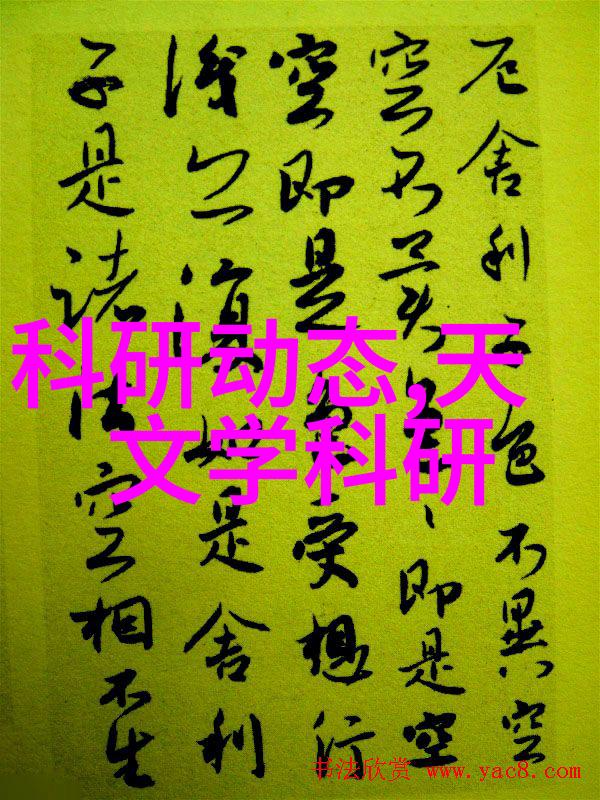 厄舍利子色不異空
空不異色色即是空
空即是色受想行
識亦復如是舍利
子是諸法空相不生
科研动态,天
文学科研
书法欣赏 www.yac8.com